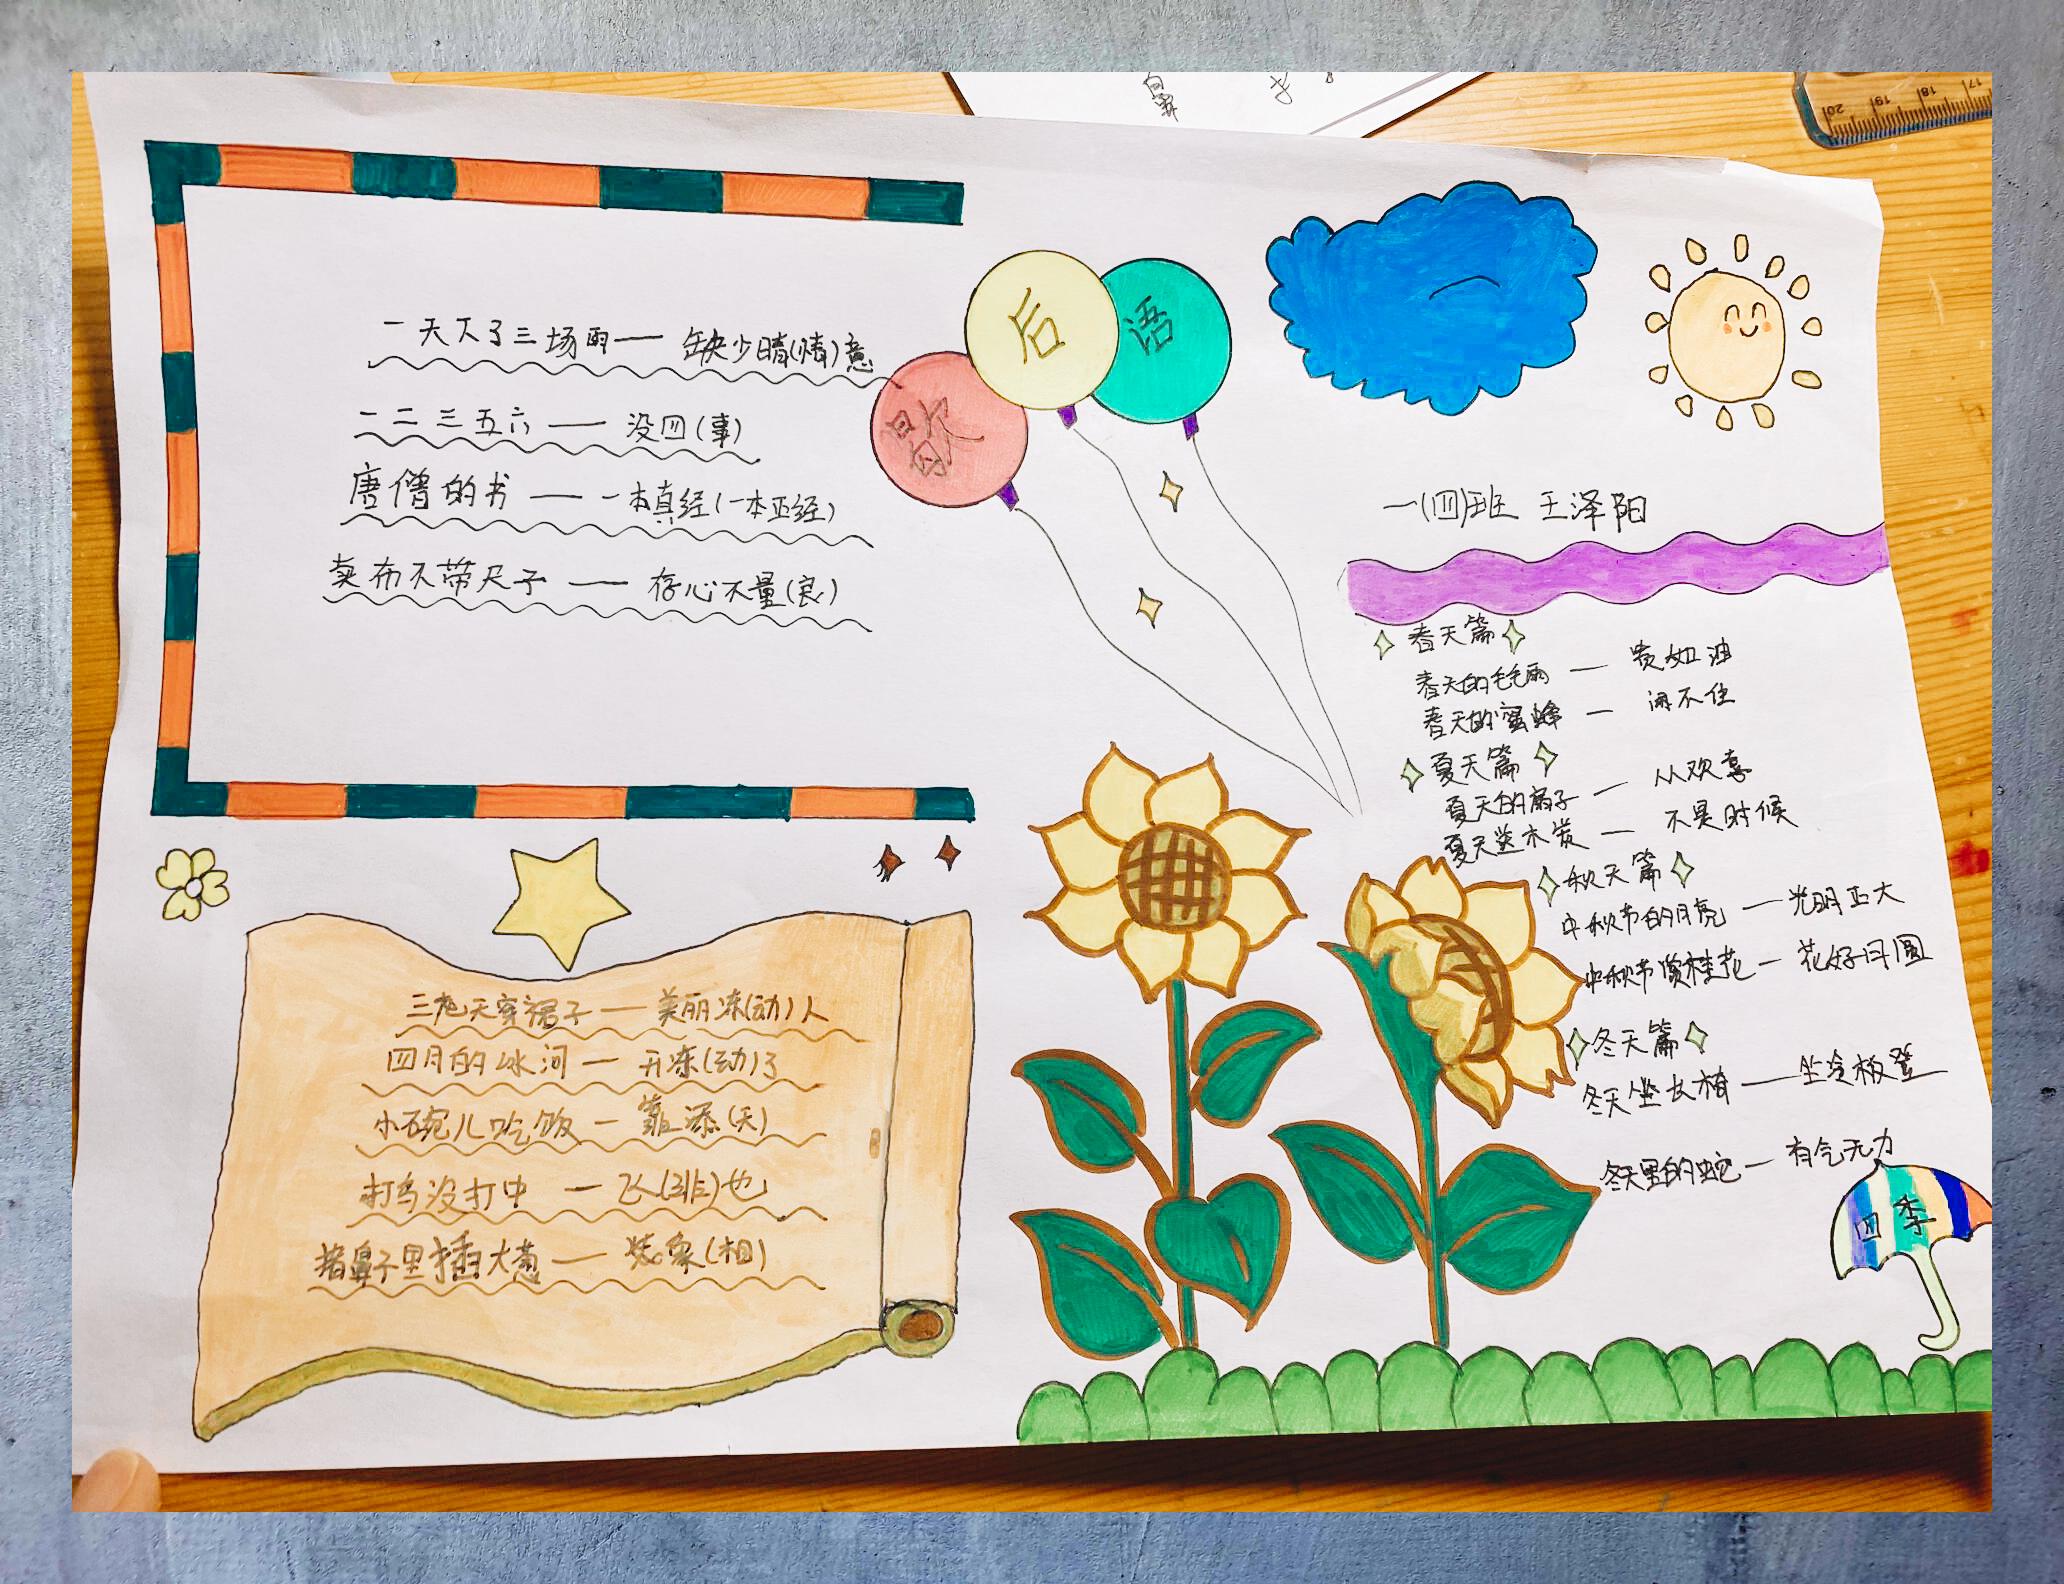 一天下了三场雨——缺少晴(情)意
一二三五六——没四(事)
唐僧的书——一本真经(一本正经)
卖布不带尺子——存心不量(良)
歇
后
语
一(四)班 王泽阳
春天篇
春天的毛毛雨—贵如油
春天的蜜蜂—闲不住
夏天篇
夏天的扇子—人人欢喜
夏天送木炭—不是时候
秋天篇
中秋节的月亮—光明正大
中秋节赏桂花—花好月圆
冬天篇
冬天坐长椅——坐冷板凳
冬天里的蛇—有气无力
四季
三九天穿裙子——美丽冻(动)人
四月的冰河—开冻(动)了
小碗儿吃饭—靠添(天)
打鸟没打中—飞(非)也
猪鼻子里插大葱——装象(相)
20 19 18 17